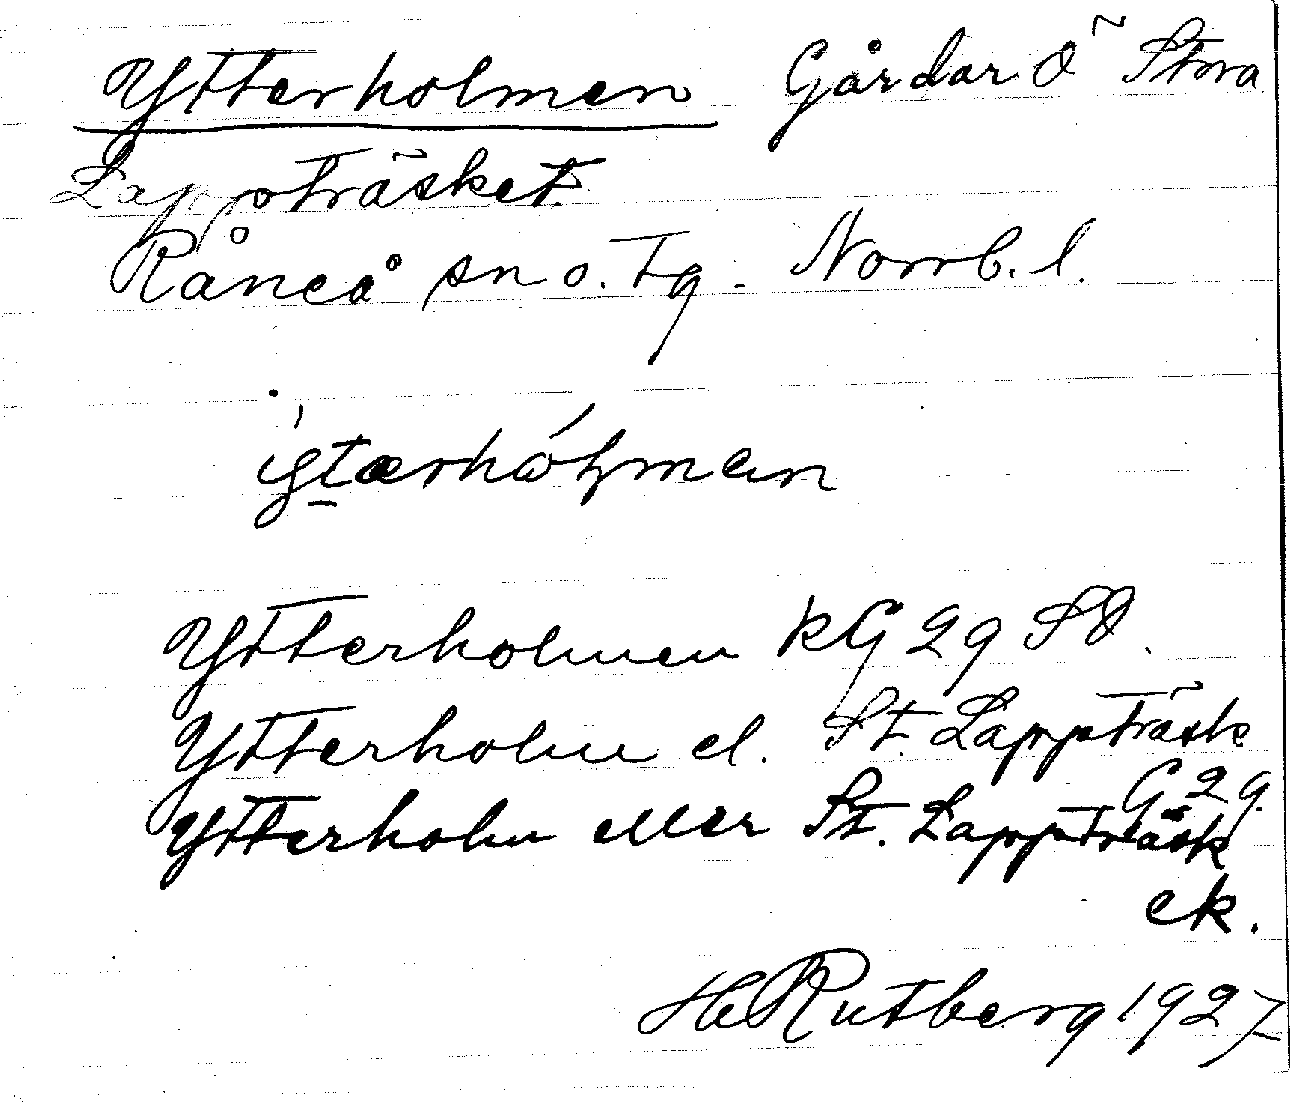 Ytterholmen Gårdar Ö Stora
Lappträsket
Råneå sn o. tg. Norrb. l.
Ytterholmen kG 29 SO
Ytterholm el. St. Lappträsk
G 29.
Ytterholm eller St. Lappträsk
ek.
H Rutberg 1927